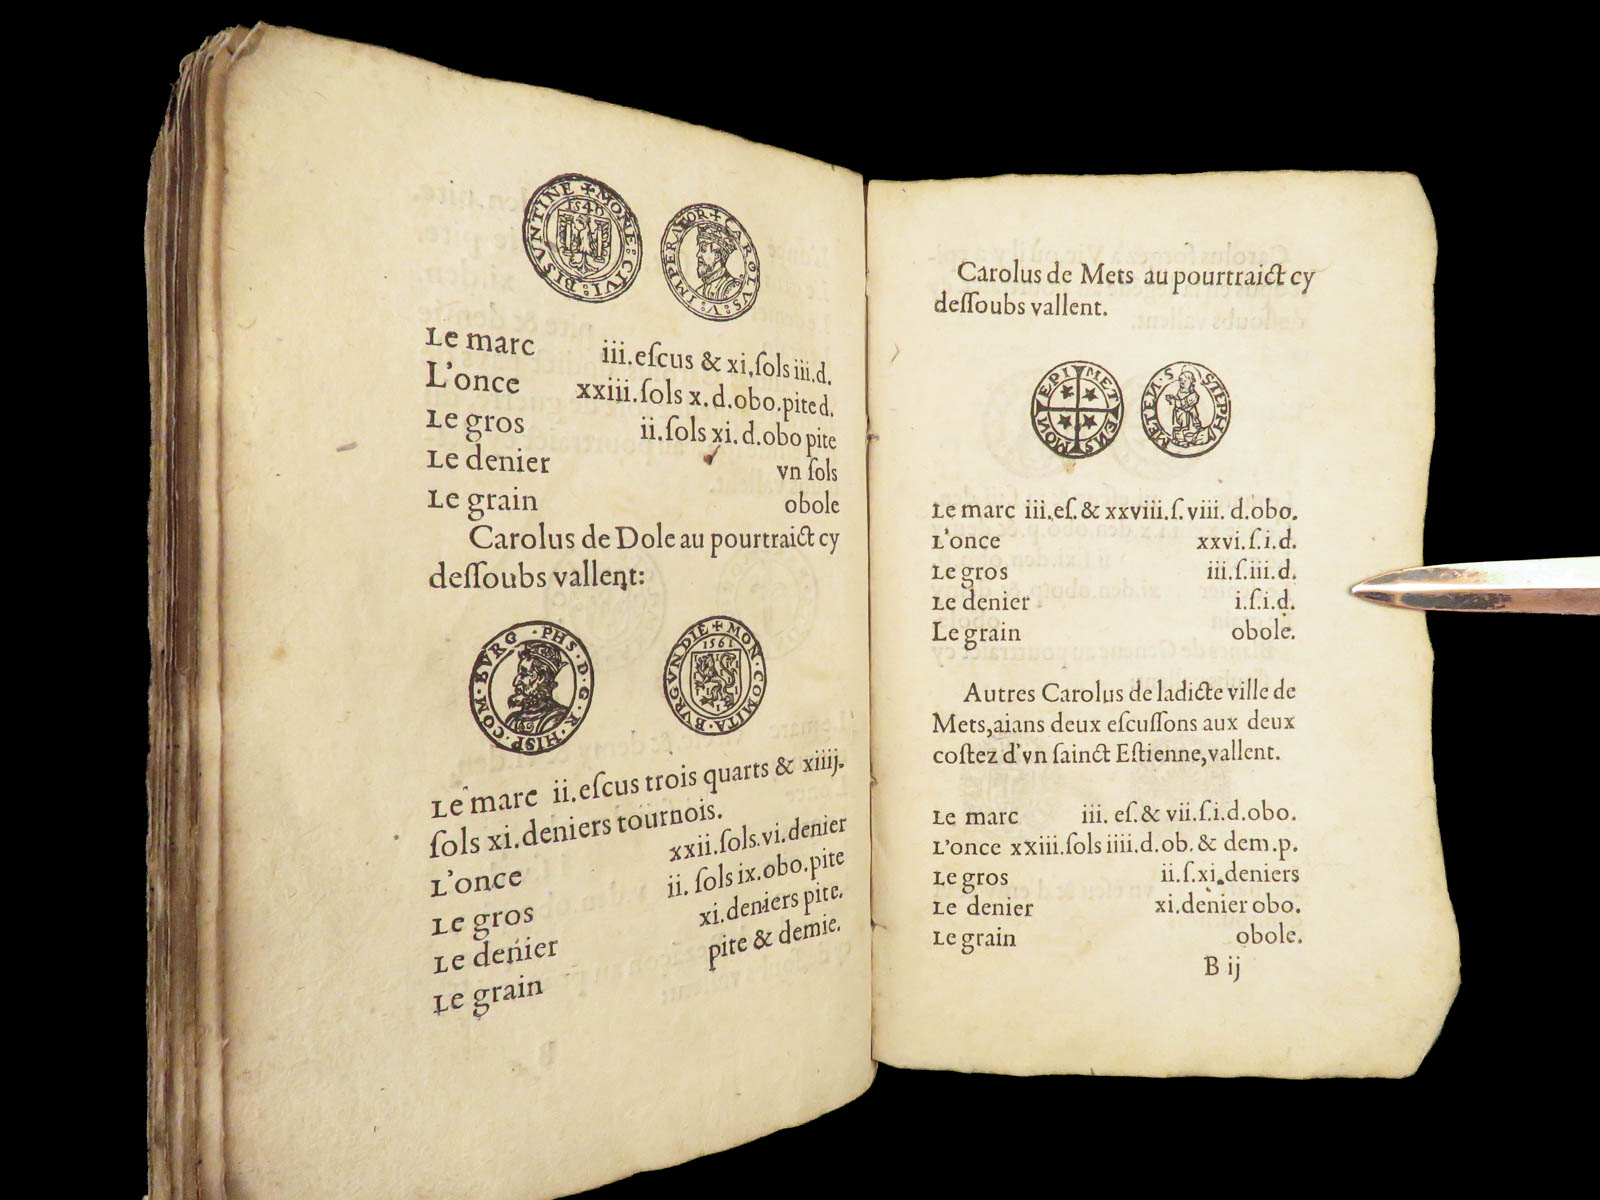 ✠ MONE : CIVI : BISVNTINE
1540
✠ CAROLVS : V : IMPERATOR
Le marc iii.eſcus & xi,ſols iii.d.
L'once xxiii.ſols x.d.obo.pite d.
Le gros ii.ſols xi.d.obo pite
Le denier vn ſols
Le grain obole
Carolus de Dole au pourtraict cy
deſſoubs vallent:
PHS · D · G · R · HISP · COM · BVRG ·
✠ MON · COMITA · BVRGVNDIE
1561
Le marc ii.eſcus trois quarts & xiiij.
ſols xi.deniers tournois.
L'once xxii.ſols.vi.denier
Le gros ii. ſols ix.obo.pite
Le denier xi.deniers pite.
Le grain pite & demie.
Carolus de Mets au pourtraict cy
deſſoubs vallent.
EPI METENS MON
S STEPHV METEN
Le marc iii.eſ.& xxviii.ſ.viii. d.obo.
L'once xxvi.ſ.i.d.
Le gros iii.ſ.iii.d.
Le denier i.ſ.i.d.
Le grain obole.
Autres Carolus de ladicte ville de
Mets,aians deux eſcuſſons aux deux
coſtez d'vn ſainct Eſtienne,vallent.
Le marc iii. eſ.& vii.ſ.i.d.obo.
L'once xxiii.ſols iiii.d.ob.& dem.p.
Le gros ii.ſ.xi.deniers
Le denier xi.denier obo.
Le grain obole.
B ij